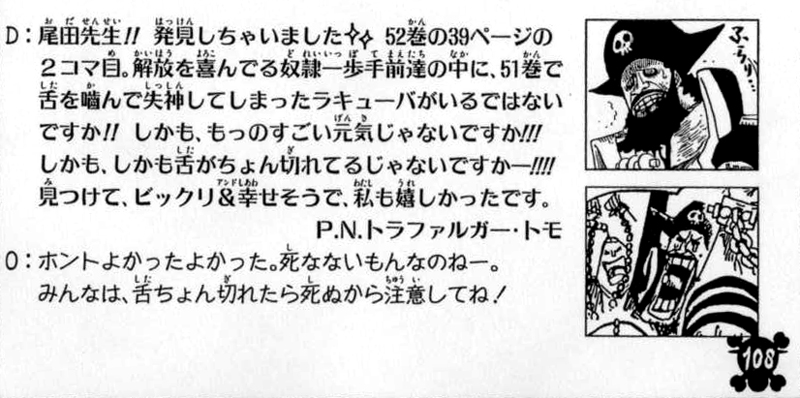 D：尾田先生!! 発見しちゃいました✧✧ 52巻の39ページの
２コマ目。解放を喜んでる奴隷一歩手前達の中に、51巻で
舌を嚙んで失神してしまったラキューバがいるではない
ですか!! しかも、もっのすごい元気じゃないですか!!!
しかも、しかも舌がちょん切れてるじゃないですかー!!!!
見つけて、ビックリ&幸せそうで、私も嬉しかったです。
P.N.トラファルガー・トモ
O：ホントよかったよかった。死なないもんなのねー。
みんなは、舌ちょん切れたら死ぬから注意してね！
ふらり…
108